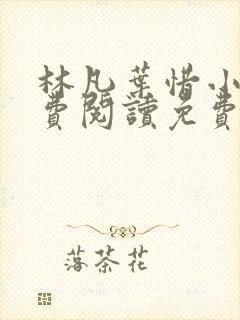 林凡葉惜小
費閱讀免費
落茶花